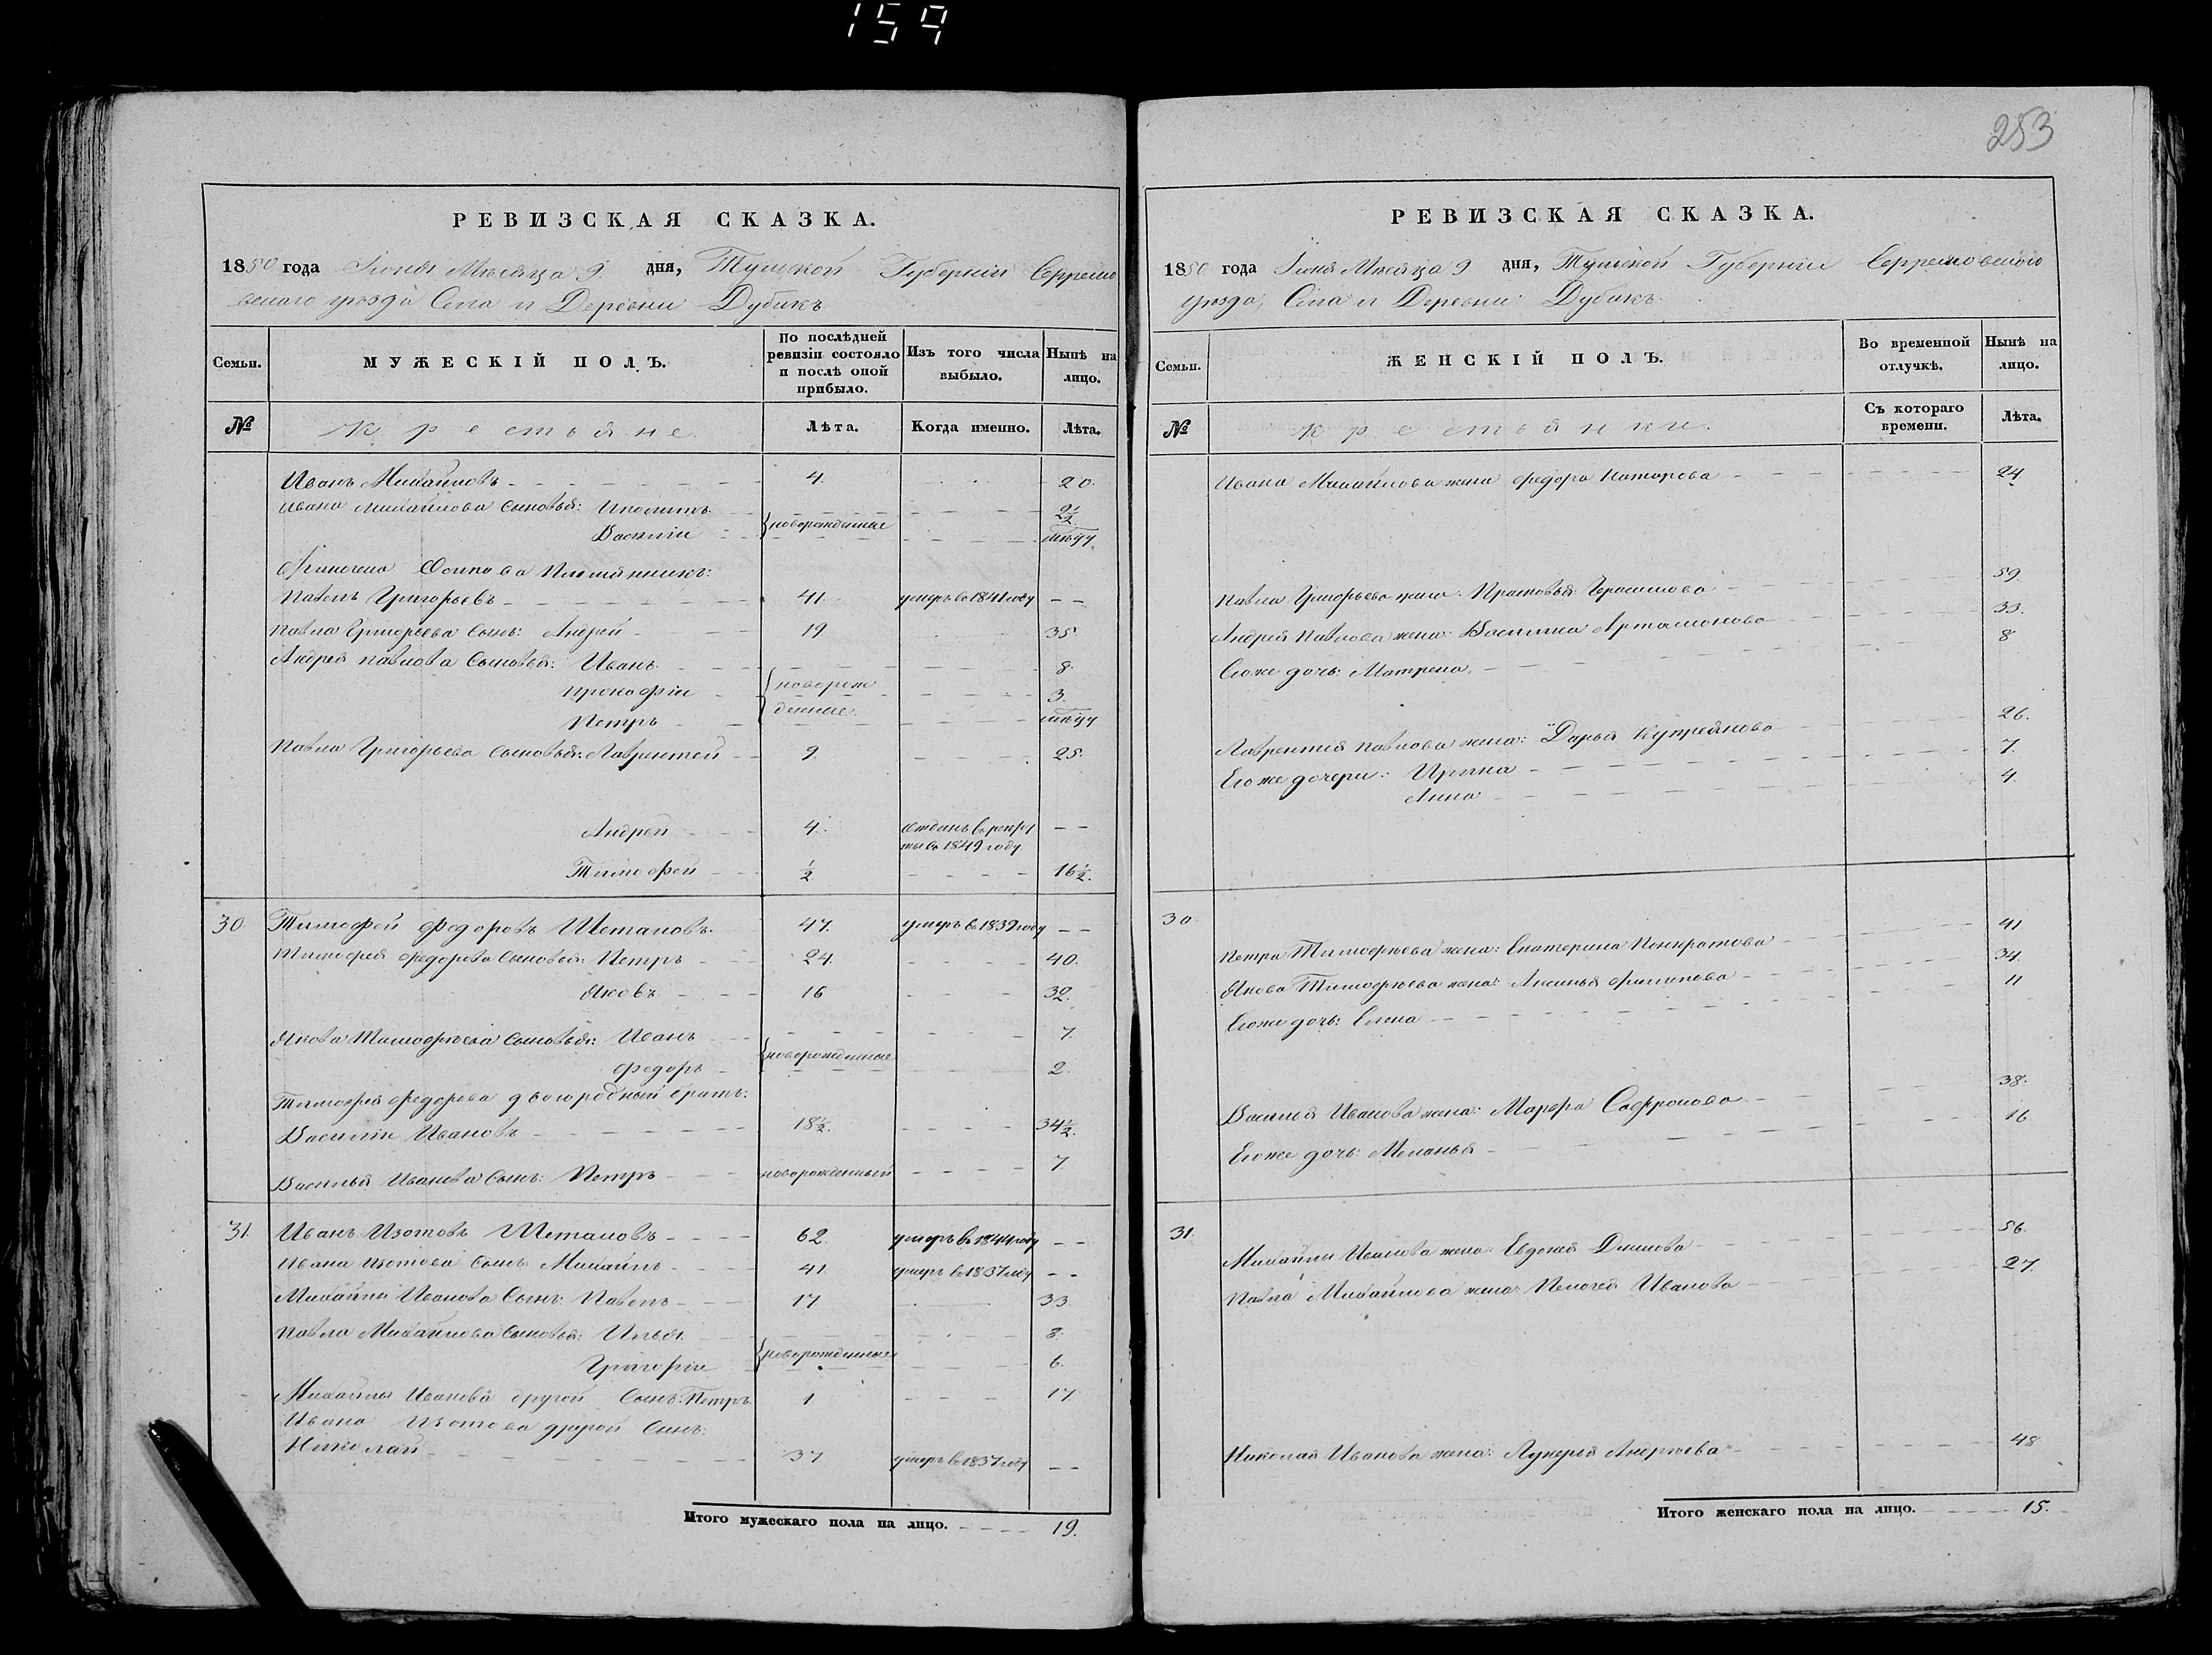 159
РЕВИЗСКАЯ СКАЗКА.
1850 года Іюня Мѣсяца 9 дня, Тульской Губерніи Ефремо
вскаго уѣзда Села и Деревни Дубикъ
Семьи. МУЖЕСКІЙ ПОЛЪ. По послѣдней ревизіи состояло и послѣ оной прибыло. Изъ того числа выбыло. Нынѣ на лицо.
№ Крестьяне. Лѣта. Когда именно. Лѣта.
Иванъ Михайловъ 4. 20.
Ивана Михайлова сыновья: Иполитъ 2½
Василій новорожденные
Осипова племянникъ:
Павелъ Григорьевъ 41. умеръ в 1841 году
Павла Григорьева сынъ: Андрей 19 35.
Андрея Павлова сыновья: Иванъ 8.
Прокофій новорож 3.
Петръ денные.
Павла Григорьева сыновья: Лаврентей 9. 25.
Андрей 4. отданъ в рекру
ты в 1849 году
Тимофей ½ 16½.
30. Тимофей Федоровъ Шеталовъ. 47. умеръ в 1839 году
Тимофея Федорова сыновья: Петръ 24. 40.
Яковъ 16 32.
Якова Тимофеева сыновья: Иванъ 7.
Федоръ новорожденные 2.
Тимофея Федорова двоюродный братъ:
Василій Ивановъ 18½. 34½.
Василья Иванова сынъ: Петръ новорожденный 7
31. Иванъ Изотовъ Шеталовъ 62. умеръ в 1844 году
Ивана Изотова сынъ Михайлъ 41 умеръ в 1837 году
Михайлы Иванова сынъ: Павелъ 17 33.
Павла Михайлова сыновья: Илья 8.
Григорій новорожденные 6.
Михайлы Иванова другой сынъ: Петръ 1 17.
Ивана Изотова другой сынъ:
Николай 37 умеръ в 1837 году
Итого мужескаго пола на лицо. 19.
253
РЕВИЗСКАЯ СКАЗКА.
1850 года Іюня Мѣсяца 9 дня, Тульской Губерніи Ефремовскаго
уѣзда, Села и Деревни Дубикъ
Семьи. ЖЕНСКІЙ ПОЛЪ. Во временной отлучкѣ. Нынѣ на лицо.
№ Крестьянки. Съ котораго времени. Лѣта.
Ивана Михайлова жена Федора 24
Павла Григорьева жена: Прасковья Герасимова 59.
Андрея Павлова жена: Василиса Артамонова 33.
Егоже дочь: Матрена 8
Лаврентія Павлова жена: Дарья Купреянова 26.
Егоже дочери: Ирина 7.
Анна 4.
30.
Петра Тимофеева жена: Екатерина Понкратова 41
Якова Тимофеева жена: Аксинья Филипова 34.
Егоже дочь: Елена 11
Василья Иванова жена: Марфа Сафронова 38.
Егоже дочь: Меланья 16
31.
Михайлы Иванова жена: Евдокея 56.
Павла Михайлова жена: Пелагея Иванова 27.
Николая Иванова жена: Лукерья Андреева 48
Итого женскаго пола на лицо. 15.